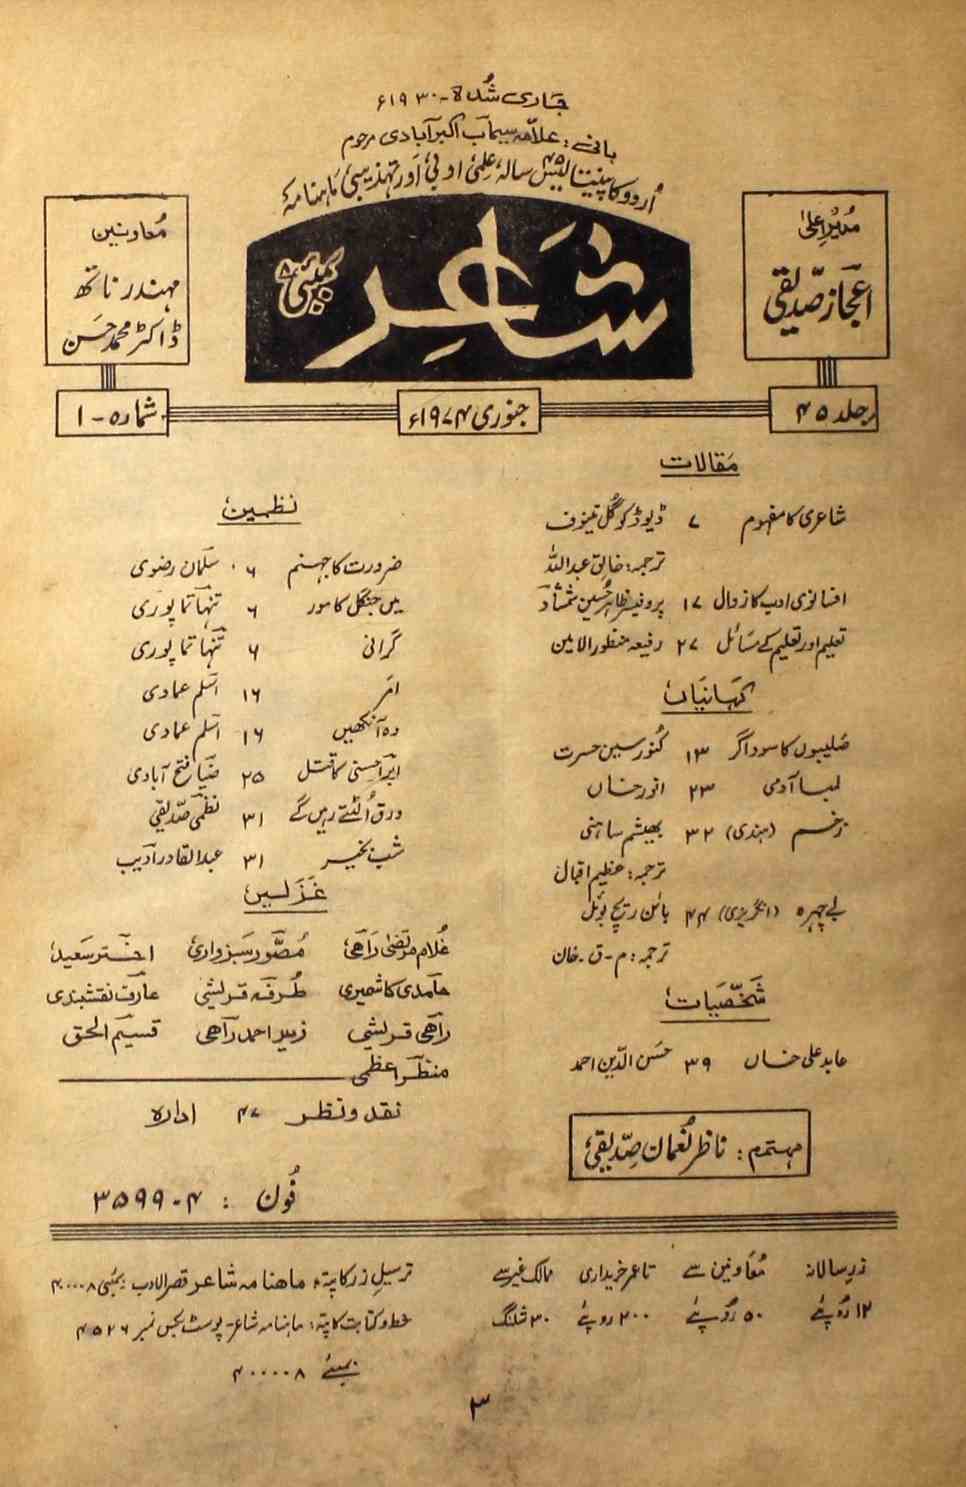 جاری شدہ - ۱۹۳۰ء
بانی: علامہ سیماب اکبرآبادی مرحوم
اُردو کا پینتالیس ۴۵ سالہ علمی ادبی اور تہذیبی ماہنامہ
شاعر
بمبئی ۸
مدیر اعلیٰ
اعجاز صدیقی
معاونین
مہندر ناتھ
ڈاکٹر محمد حسن
جلد ۴۵
جنوری ۱۹۷۴ء
شمارہ - ۱
مقالات
شاعری کا مفہوم ۷ ڈیوڈ کوگل تینوف
ترجمہ: خالق عبداللہ
افسانوی ادب کا زوال ۱۷ پروفیسر طاہر حسین شمشاد
تعلیم اور تعلیم کے مسائل ۲۷ رفیعہ منظور الامین
کہانیاں
صلیبوں کا سوداگر ۱۳ کنور سین حسرت
لمبا آدمی ۲۳ انور خاں
زخم (ہندی) ۳۲ بھیشم ساہنی
ترجمہ: عظیم اقبال
بے چہرہ (انگریزی) ۴۴ ہائن ریخ بوئل
ترجمہ: م - ق - خان
شخصیات
عابد علی خاں ۳۹ حسن الدین احمد
مہتمم: ناظر نعمان صدیقی
نظمیں
ضرورت کا جہنم ۶ سلمان رضوی
میں جنگل کا مور ۶ تنہا تماپوری
گرانی ۶ تنہا تماپوری
امر ۱۶ اسلم عمادی
وہ آنکھیں ۱۶ اسلم عمادی
ابر احسنی کا قتل ۲۵ ضیا فتح آبادی
ورق الٹتے رہیں گے ۳۱ نظمی صدیقی
شب بخیر ۳۱ عبدالقادر ادیب
غزلیں
غلام مرتضیٰ راہی مصور سبزواری اختر سعید
حامدی کاشمیری طرفہ قریشی عارف نقشبندی
راہی قریشی زبیر احمد راہی قسیم الحق
منظر اعظمی
نقد و نظر ۴۷ ادارہ
فون: ۳۵۹۹۰۴
زرِ سالانہ معاونین سے تا عمر خریداری ممالک غیر سے
۱۲ روپئے ۵۰ روپئے ۲۰۰ روپئے ۳۰ شلنگ
ترسیلِ زر کا پتہ: ماہنامہ شاعر قصر الادب بمبئی ۴۰۰۰۰۸
خط و کتابت کا پتہ: ماہنامہ شاعر - پوسٹ بکس نمبر ۴۵۲۶
بمبئی ۴۰۰۰۰۸
۳